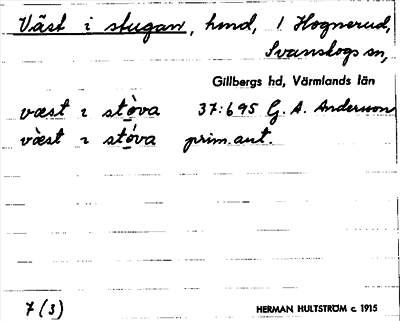 Väst i stugan, hmd, 1 Hognerud,
Svanskogs sn,
Gillbergs hd, Värmlands län
væst ɩ stòva 37:695 G. A. Andersson
vǽst ɩ stóva prim. ant.
7 (s)
HERMAN HULTSTRÖM c. 1915